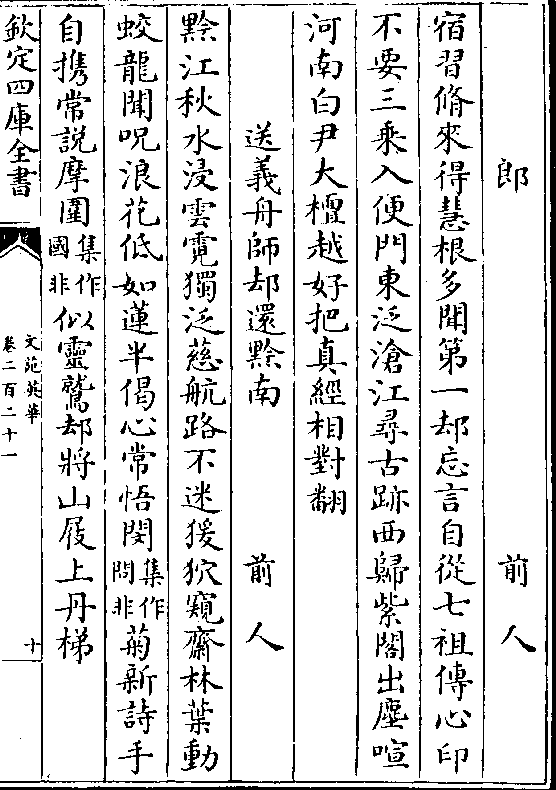 郎　前人
宿習脩來得慧根多聞第一却忘言自從七祖傳心印
不要三乘入便門東泛滄江尋古跡西歸紫閣出塵喧
河南白尹大檀越好把真經相對翻
送義舟師却還黔南　前人
黔江秋水浸雲霓獨泛慈航路不迷猨狖窺齋林葉動
蛟龍聞呪浪花低如蓮半偈心常悟閔集作問非菊新詩手
自携常説摩圍集作國非似靈鷲却將山屐上丹梯
欽定四庫全書
文苑英華
卷二百二十一
十